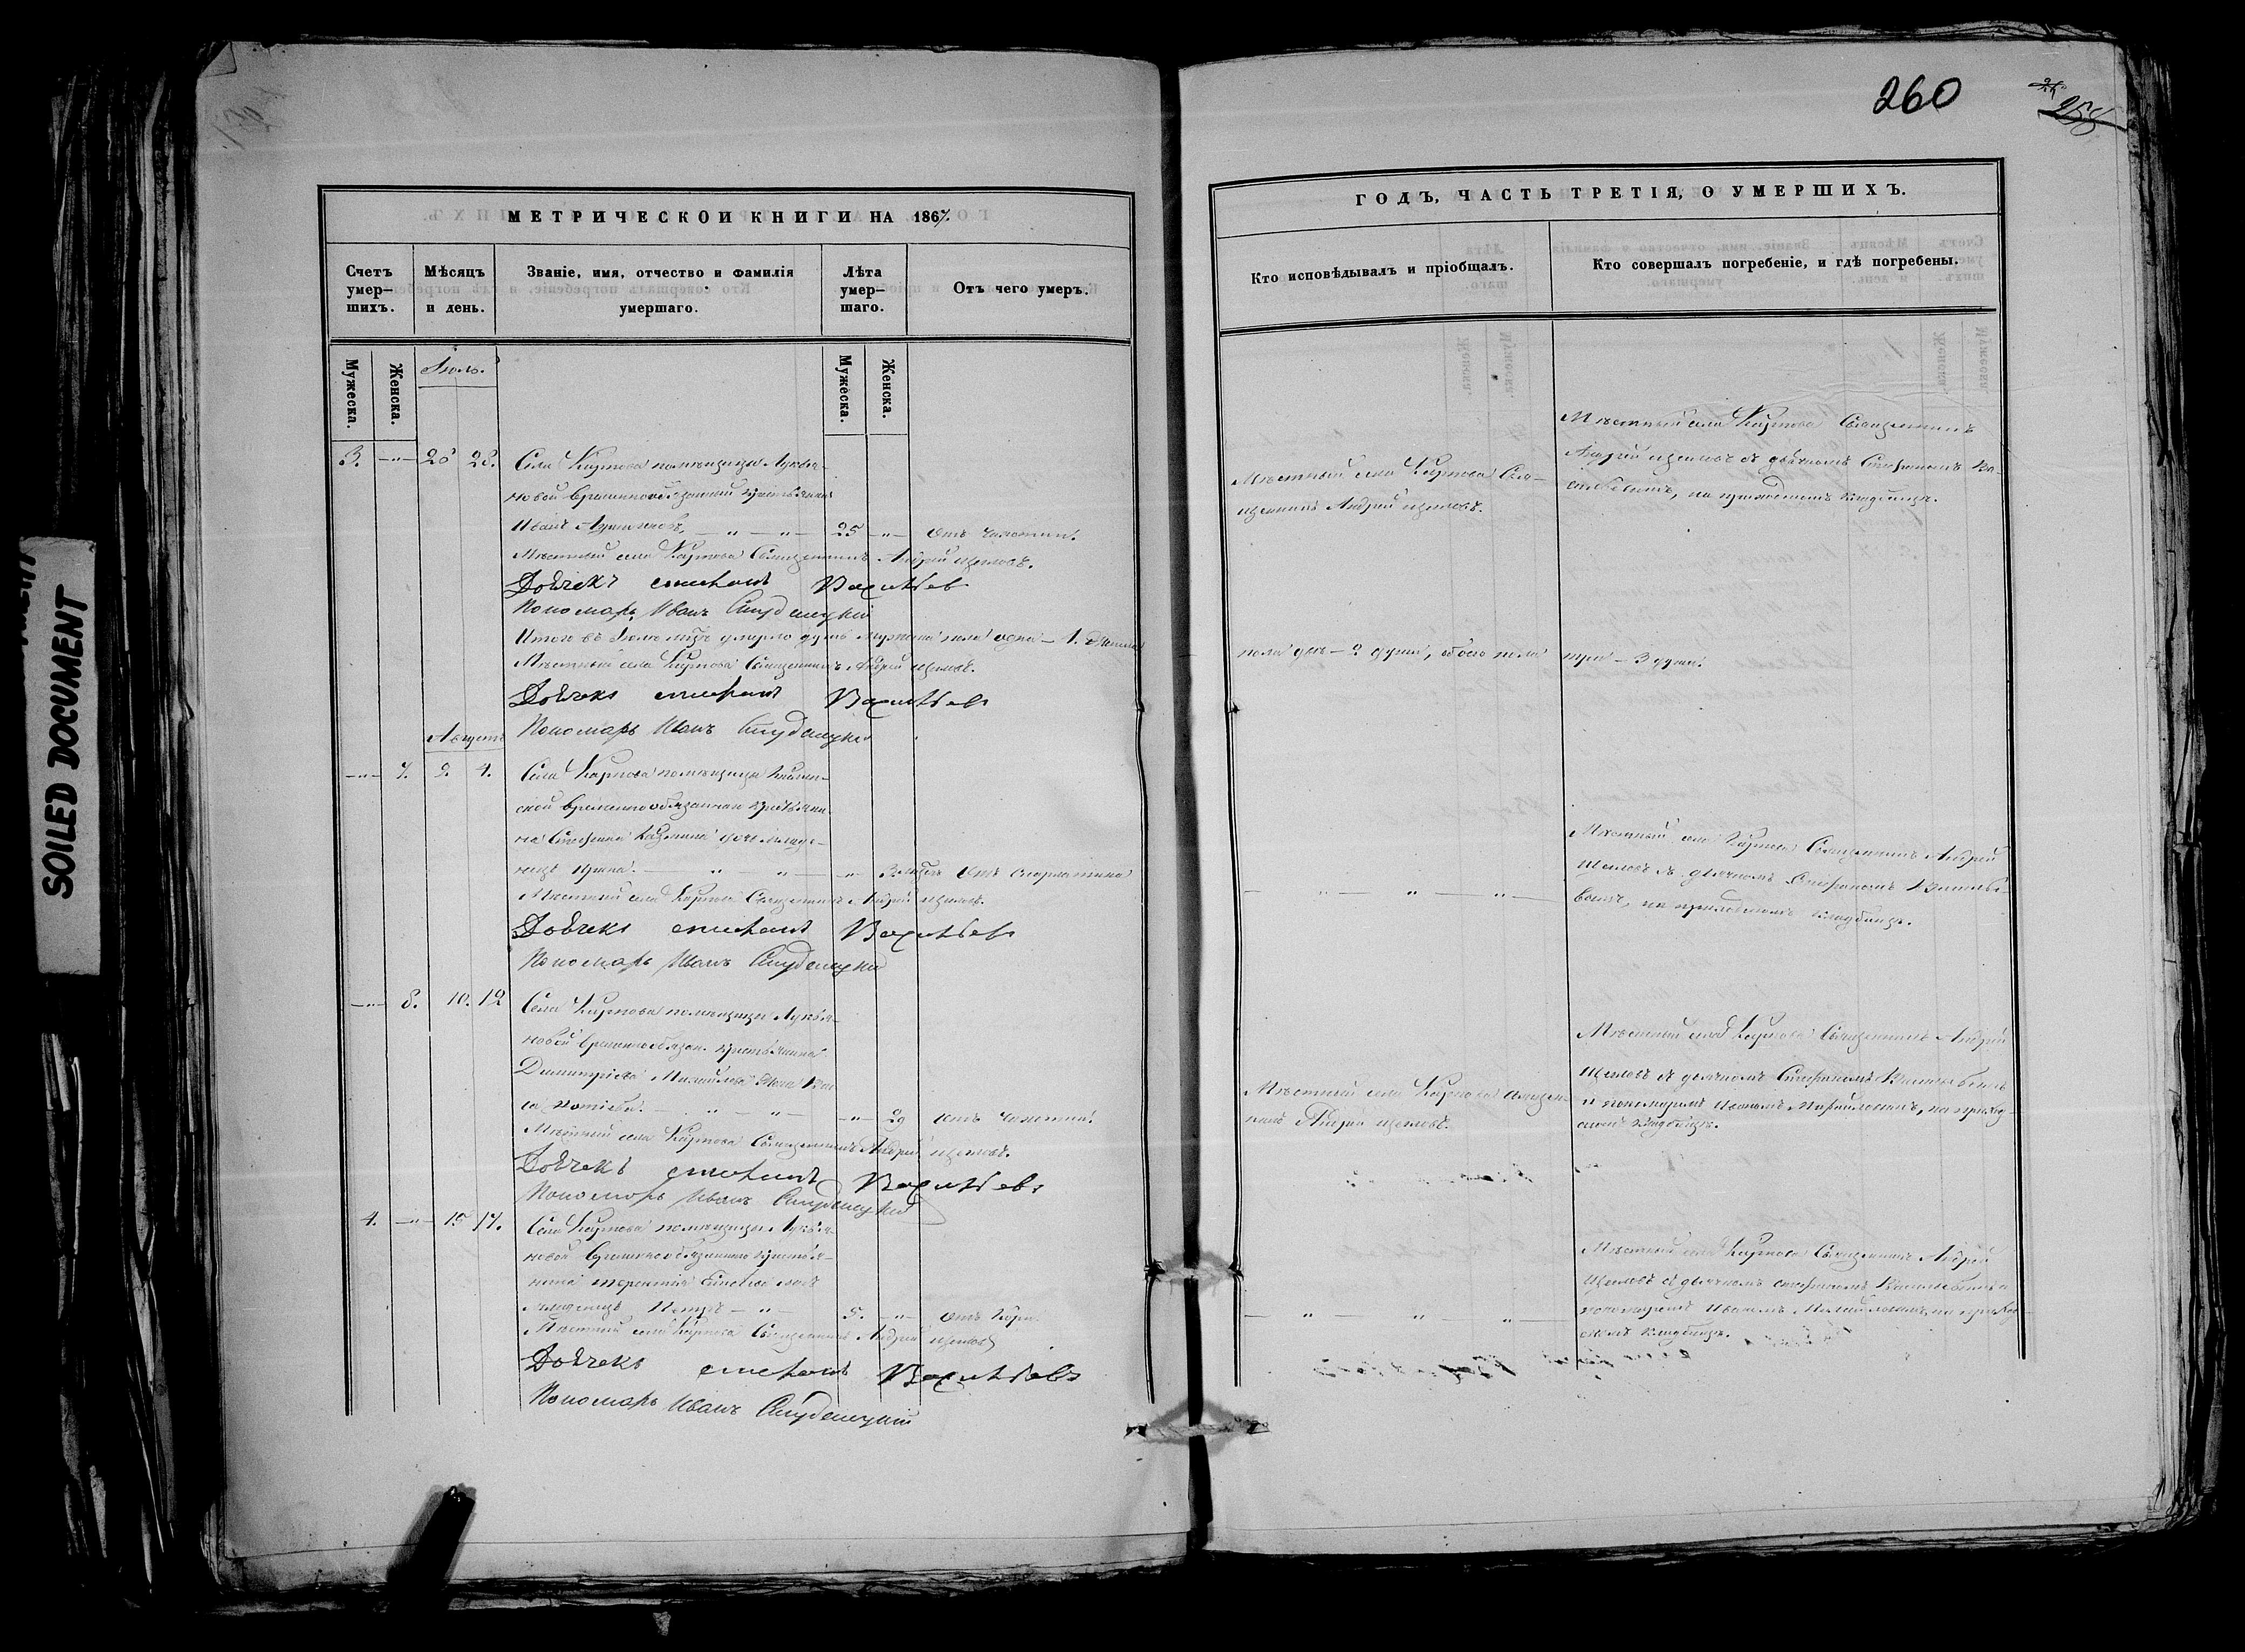 SOILED DOCUMENT
МЕТРИЧЕСКОЙ КНИГИ НА 1867.
Счетъ умер-
шихъ.
Мѣсяцъ
и день.
Званіе, имя, отчество и фамилія
умершаго.
Лѣта
умер-
шаго.
Отъ чего умеръ.
Мужеска.
Женска.
Іюль.
Мужеска.
Женска.
3. —"— 26 28. Села Карпова помѣщицы Лукья-
новой временнообязанный крестьянинъ
Иванъ — " — " — 25 —"— Отъ чахотки.
Мѣстный села Карпова Священникъ Андрей Щегловъ.
Дьячекъ Стефанъ Васильевъ
Пономарь Иванъ Студенецкій
Итого въ Іюлѣ м-цѣ умерло душъ мужеска пола одна — 1. Женска
Мѣстный села Карпова Священникъ Андрей Щегловъ.
Дьячекъ Стефанъ Васильевъ
Августъ Пономарь Иванъ Студенецкій
—"— 7. 2. 4. Села Карпова помѣщицы
ской временнообязаннаго крестьяни-
на Стефана дочь младе-
нецъ — " — " — —"— Отъ
Мѣстный села Карпова Священникъ Андрей Щегловъ.
Дьячекъ Стефанъ Васильевъ
Пономарь Иванъ Студенецкій
—"— 8. 10. 12 Села Карпова помѣщицы Лукья-
новой временнообязан. крестьянина
Димитрія Михайлова жена Ва-
са — " — " — —"— 29 Отъ чахотки.
Мѣстный села Карпова Священникъ Андрей Щегловъ.
Дьячекъ Стефанъ Васильевъ
Пономарь Иванъ Студенецкій
4. —"— 15 17. Села Карпова помѣщицы Лукья-
новой временнообязаннаго крестья-
нина Терентія сынъ
младенецъ Петръ — " — 5. —"— Отъ Кори.
Мѣстный села Карпова Священникъ Андрей Щегловъ
Дьячекъ Стефанъ Васильевъ
Пономарь Иванъ Студенецкій
260
258
ГОДЪ, ЧАСТЬ ТРЕТІЯ, О УМЕРШИХЪ.
Кто исповѣдывалъ и пріобщалъ.
Кто совершалъ погребеніе, и гдѣ погребены.
Мѣстный села Карпова Свя-
щенникъ Андрей Щегловъ.
Мѣстный села Карпова Священникъ
Андрей Щегловъ съ дьячкомъ Стефаномъ Ва-
сильевымъ, на приходскомъ кладбищѣ.
пола двѣ — 2 души, обоего пола три — 3 души.
— " — " — " —
Мѣстный села Карпова Священникъ Андрей
Щегловъ съ дьячкомъ Стефаномъ Василье-
вымъ, на приходскомъ кладбищѣ.
Мѣстный села Карпова Священ-
никъ Андрей Щегловъ.
Мѣстный села Карпова Священникъ Андрей
Щегловъ съ дьячкомъ Стефаномъ Васильевымъ
и пономаремъ Иваномъ Михайловымъ, на приход-
скомъ кладбищѣ.
— " — " — " —
Мѣстный села Карпова Священникъ Андрей
Щегловъ съ дьячкомъ Стефаномъ Васильевымъ и
пономаремъ Иваномъ Михайловымъ, на приход-
скомъ кладбищѣ.